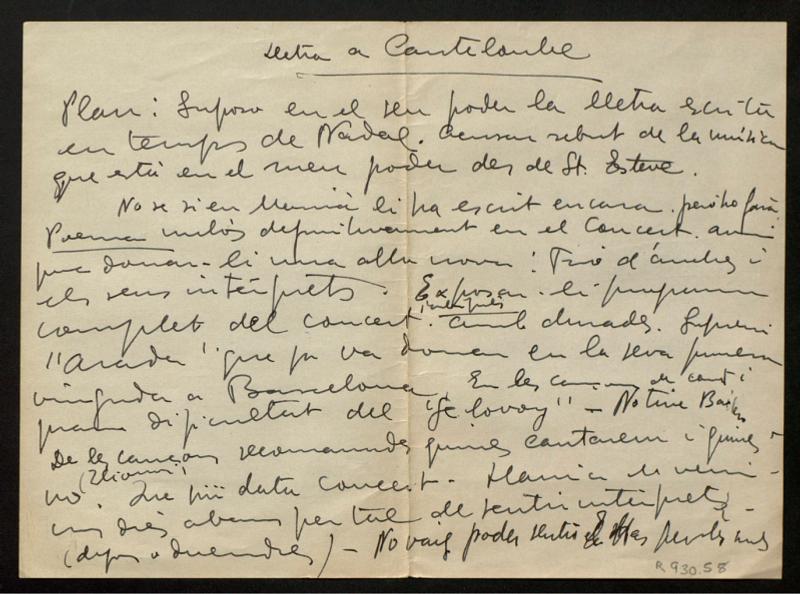 Lletra a Canteloube
Plan: Suposo en el seu poder la lletra escrita
en temps de Nadal. Acusar rebut de la música
que està en el meu poder des de St. Esteve.
No se si en li ha escrit encara, però ho farà.
Poema inclòs definitivament en el Concert.
puc donar-li una altra nova: Trio d'anches i
els seus intèrprets. Exposar-li programa
complet del concert. amb durades.
"Arada" que ja va donar en la seva primera
vinguda a Barcelona. En les cançons de cant i
piano dificultat del - No tine
De les cançons recomanades quines cantarem i quines
no. data concert.
uns dies abans per tal de sentir intèrprets -
(dijous o divendres) - No vaig poder sentir
R 930.58